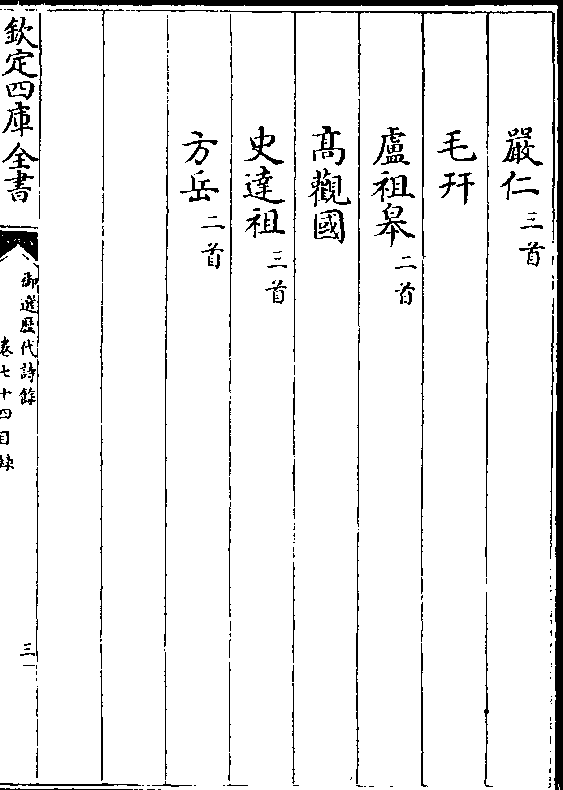 嚴仁三首
毛幵
盧祖皋二首
髙觀國
史達祖三首
方岳二首
欽定四庫全書
御選歷代詩餘
卷七十四目録
三